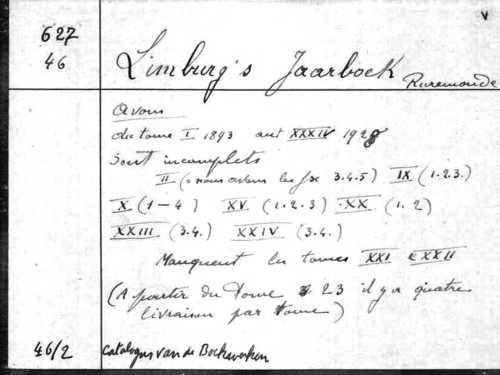 V
627
46
Limburg's Jaarboek Ruremonde
Avons
du tome I 1893 au XXXIV 1928
Sont incomplets
II (= nous avons les fsc 3.4.5) IX (1.2.3.)
X (1-4) XV (1.2.3) XX (1.2)
XXIII (3.4.) XXIV (3.4.)
Manquent les tomes XXI & XXII
(A partir du Tome 23 il y a quatre
livraison par tome)
46/2 Catalogus van de Boekwerken